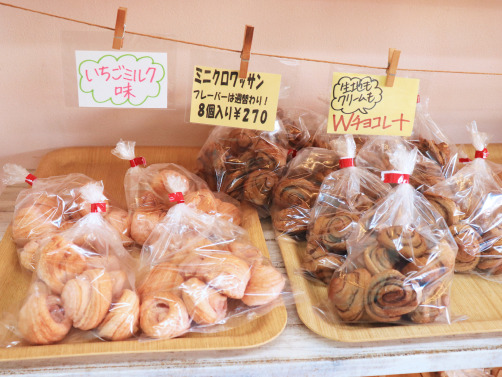 いちごミルク
味
ミニクロワッサン
フレーバーは週替わり!
8個入り¥270
生地も
クリームも
Wチョコレート